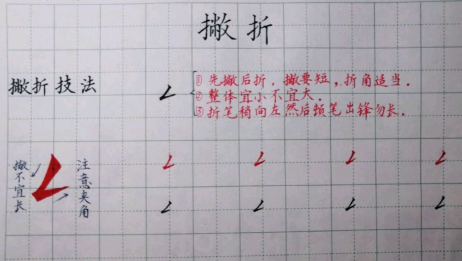 撇折
撇折技法
①先撇后折，撇要短，折角适当。
②整体宜小不宜大。
③折笔稍向左然后顿笔出锋勿长。
撇不宜长
注意夹角